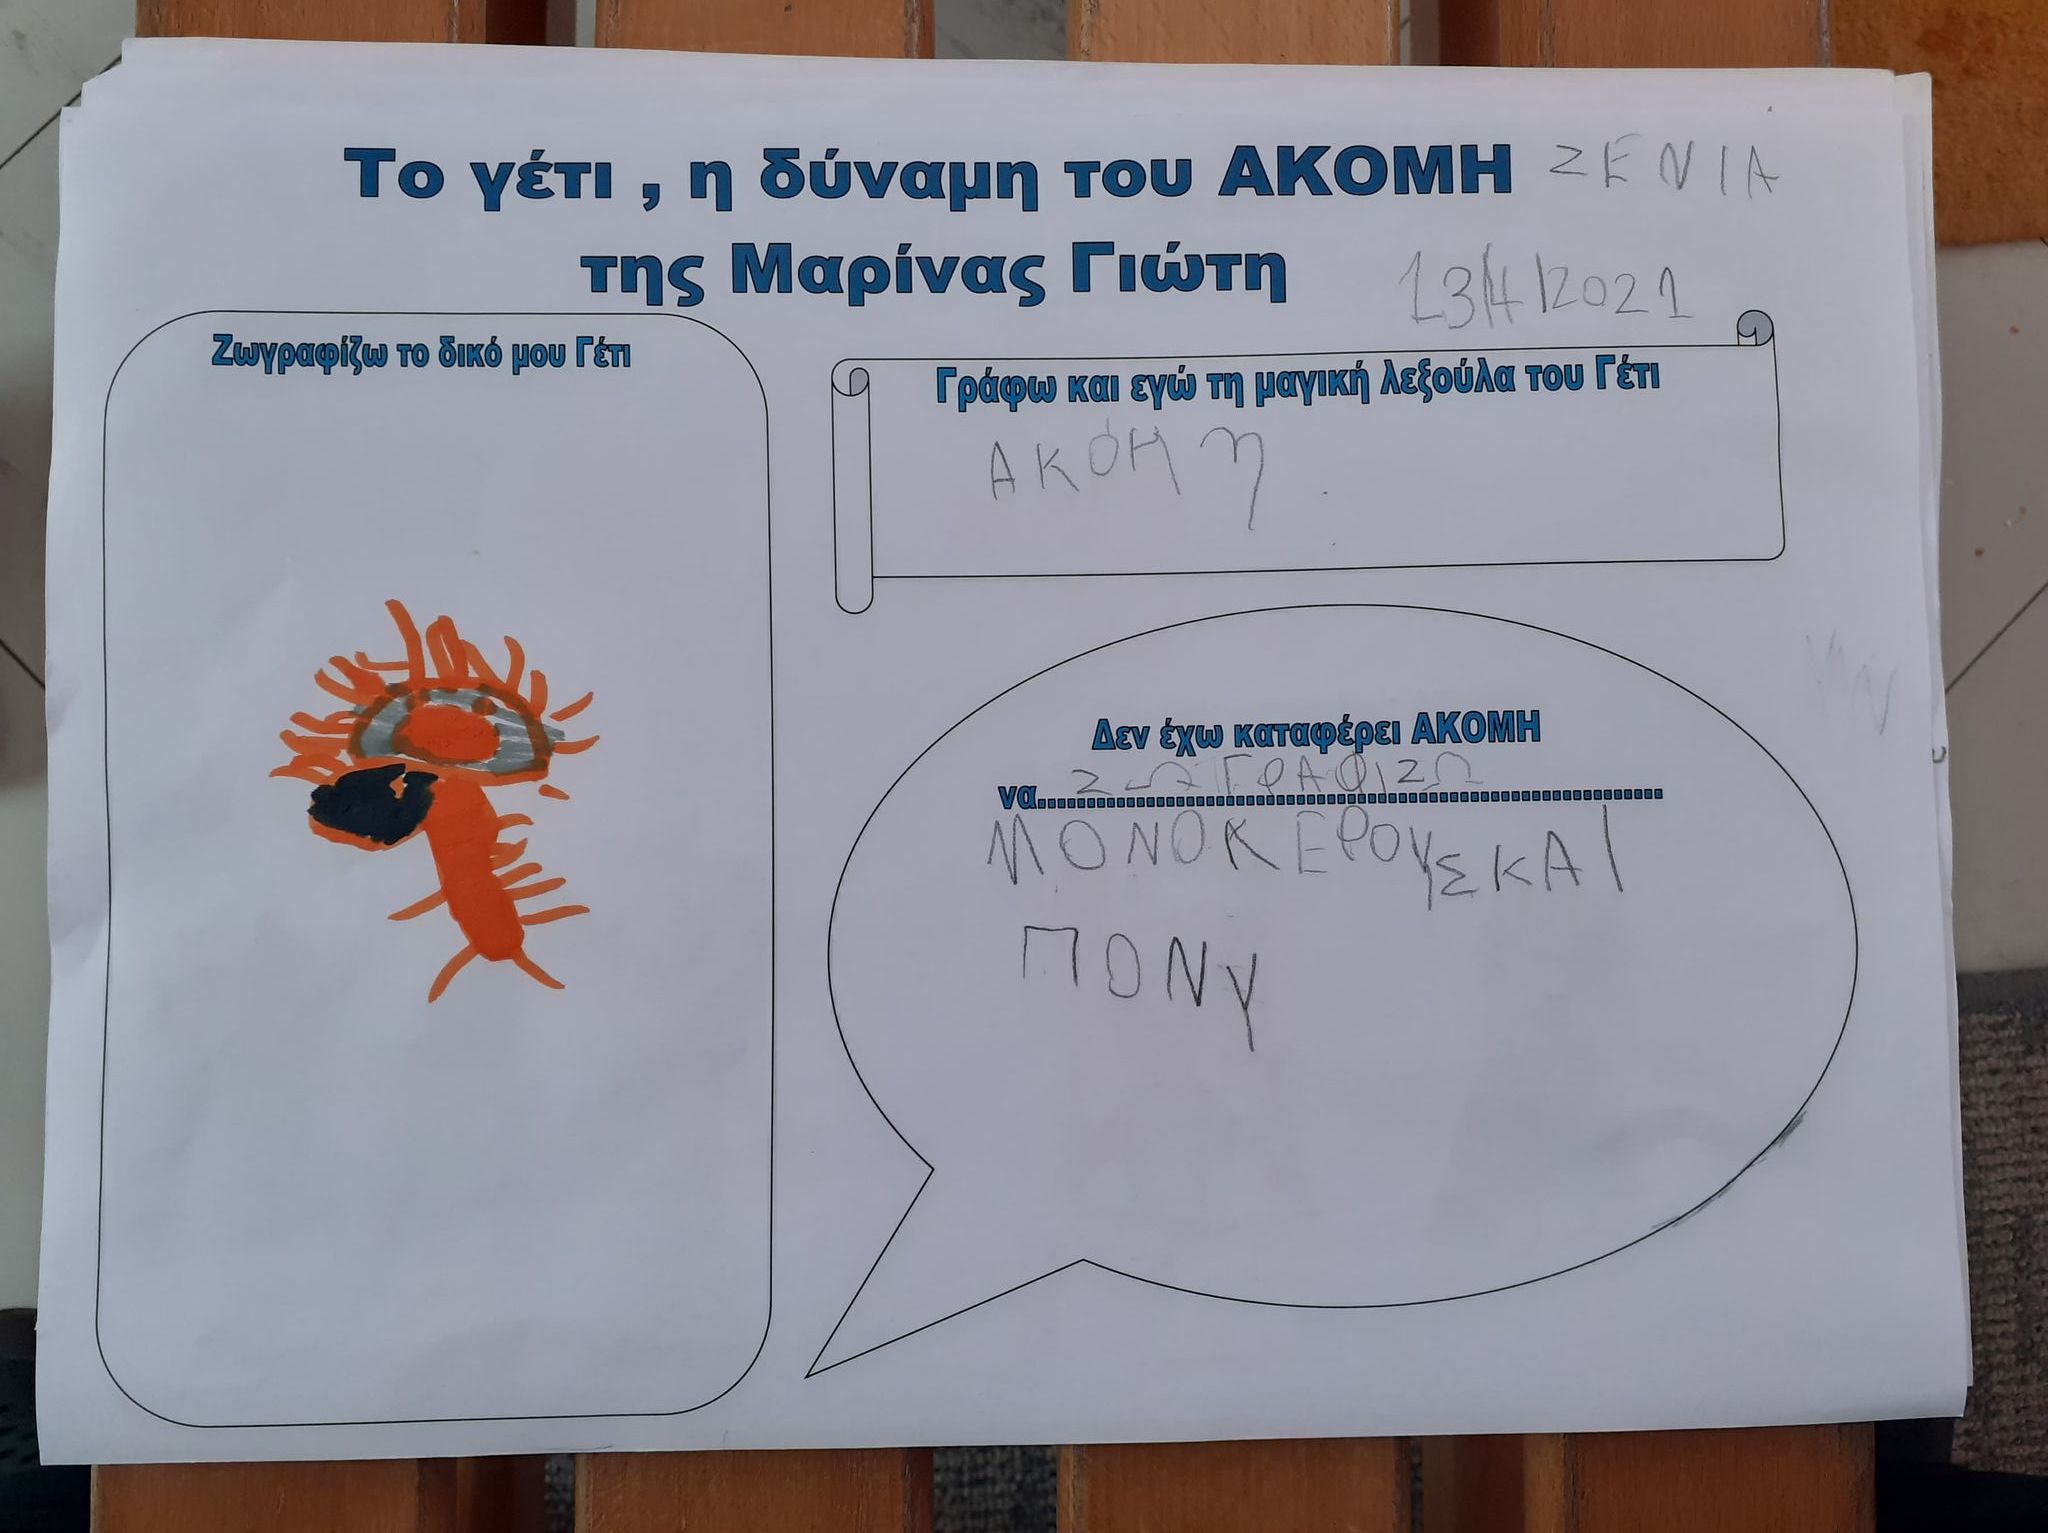 Το γέτι , η δύναμη του ΑΚΟΜΗ ΞΕΝΙΑ
της Μαρίνας Γιώτη 13/4/2021
Ζωγραφίζω το δικό μου Γέτι
Γράφω και εγώ τη μαγική λεξούλα του Γέτι
ΑΚΟΜη
Δεν έχω καταφέρει ΑΚΟΜΗ
να ΖΩΓΡΑΦΙΖΩ
ΜΟΝΟΚΕΡΟΥΣ ΚΑΙ
ΠΟΝΥ